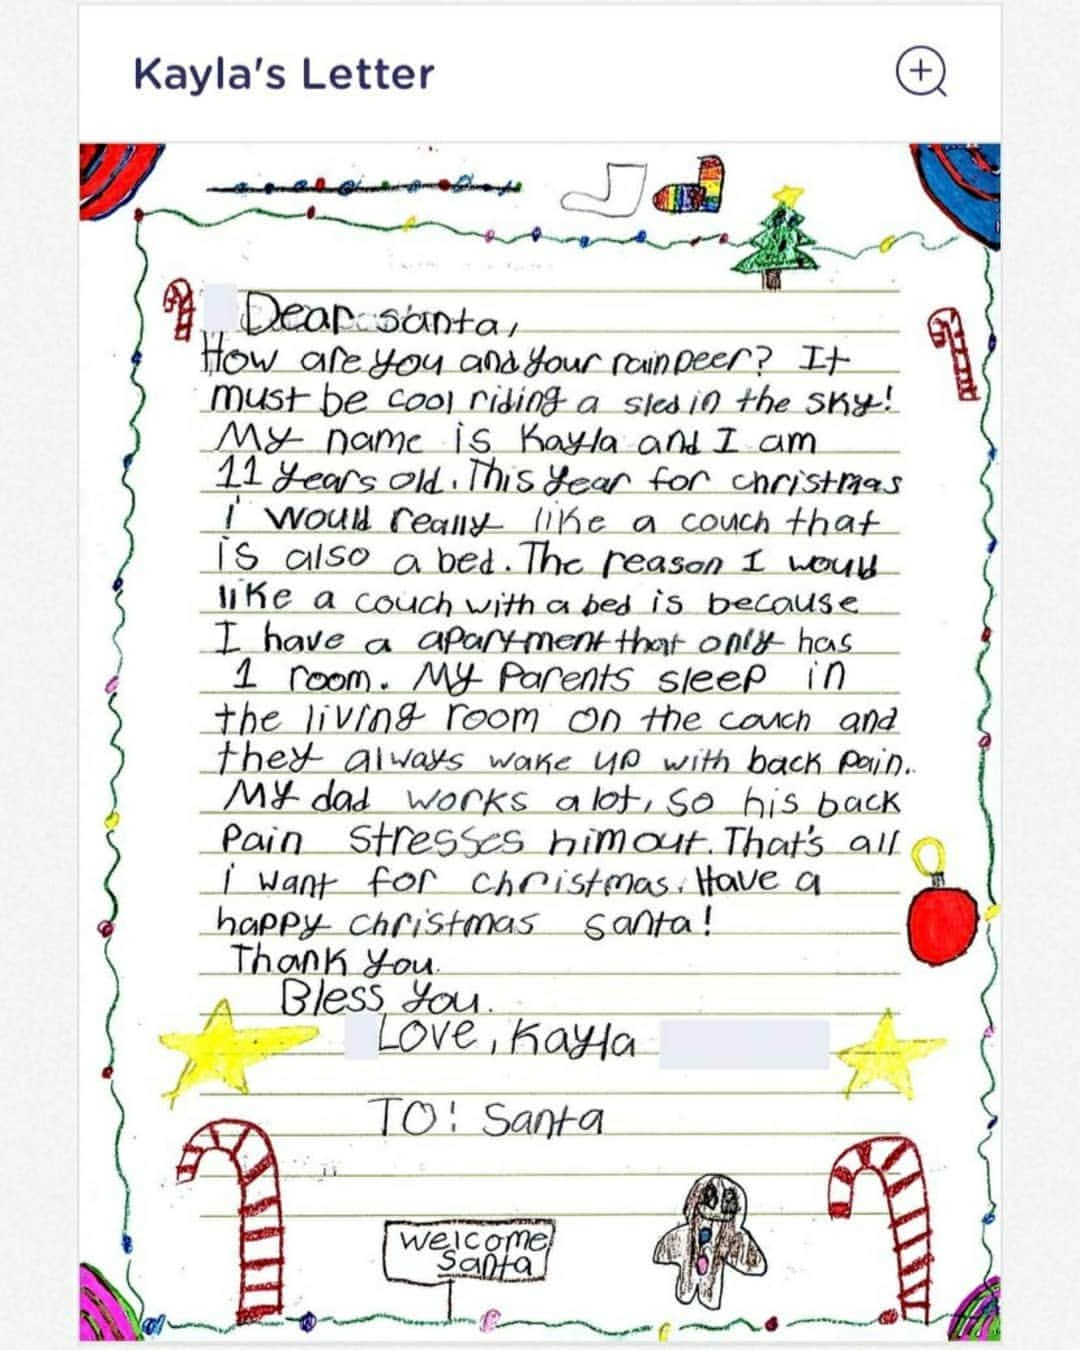 Kayla's Letter
Dear santa,
How are you and your rainpeer? It
must be cool riding a sled in the sky!
My name is Kayla and I am
11 years old. This year for christmas
i would really like a couch that
is also a bed. The reason I would
like a couch with a bed is because
I have a apartment that only has
1 room. My Parents sleep in
the living room on the couch and
they always wake up with back pain.
My dad works a lot, so his back
Pain stresses him out. That's all
i want for christmas. Have a
happy christmas santa!
Thank you.
Bless you.
Love, Kayla
TO: Santa
welcome
Santa